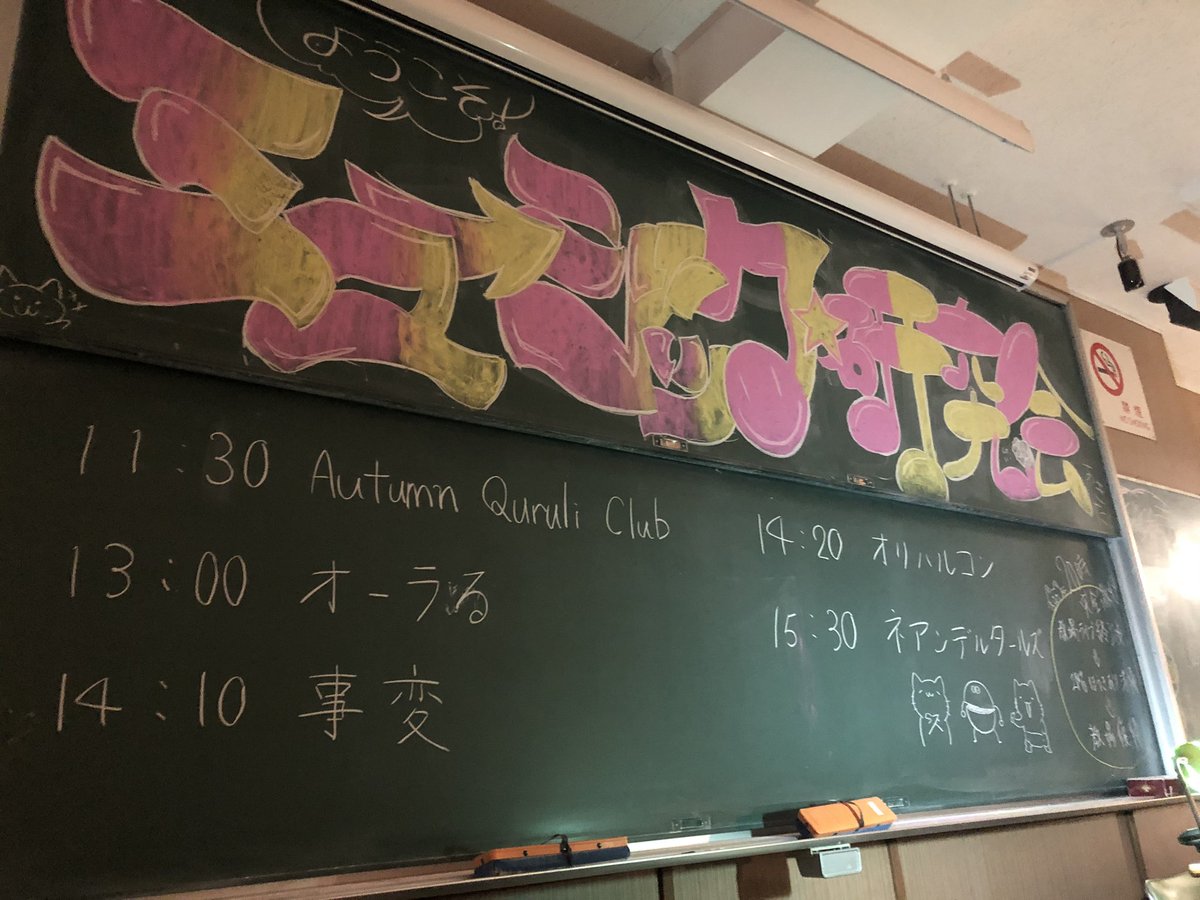 ようこそ!
ミュージック☆研究会
11:30 Autumn Quruli Club
13:00 オーラる
14:10 事変
14:20 オリハルコン
15:30 ネアンデルタールズ
禁煙
NO SMOKING